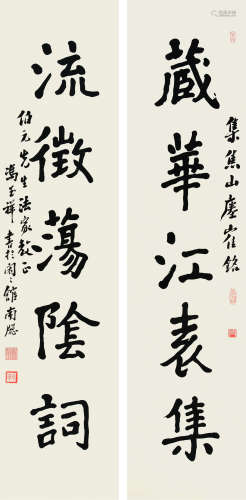 集焦山瘞隺銘
藏華江表集
流徵蕩陰詞
伯元先生法家教正
馮玉祥書於館南